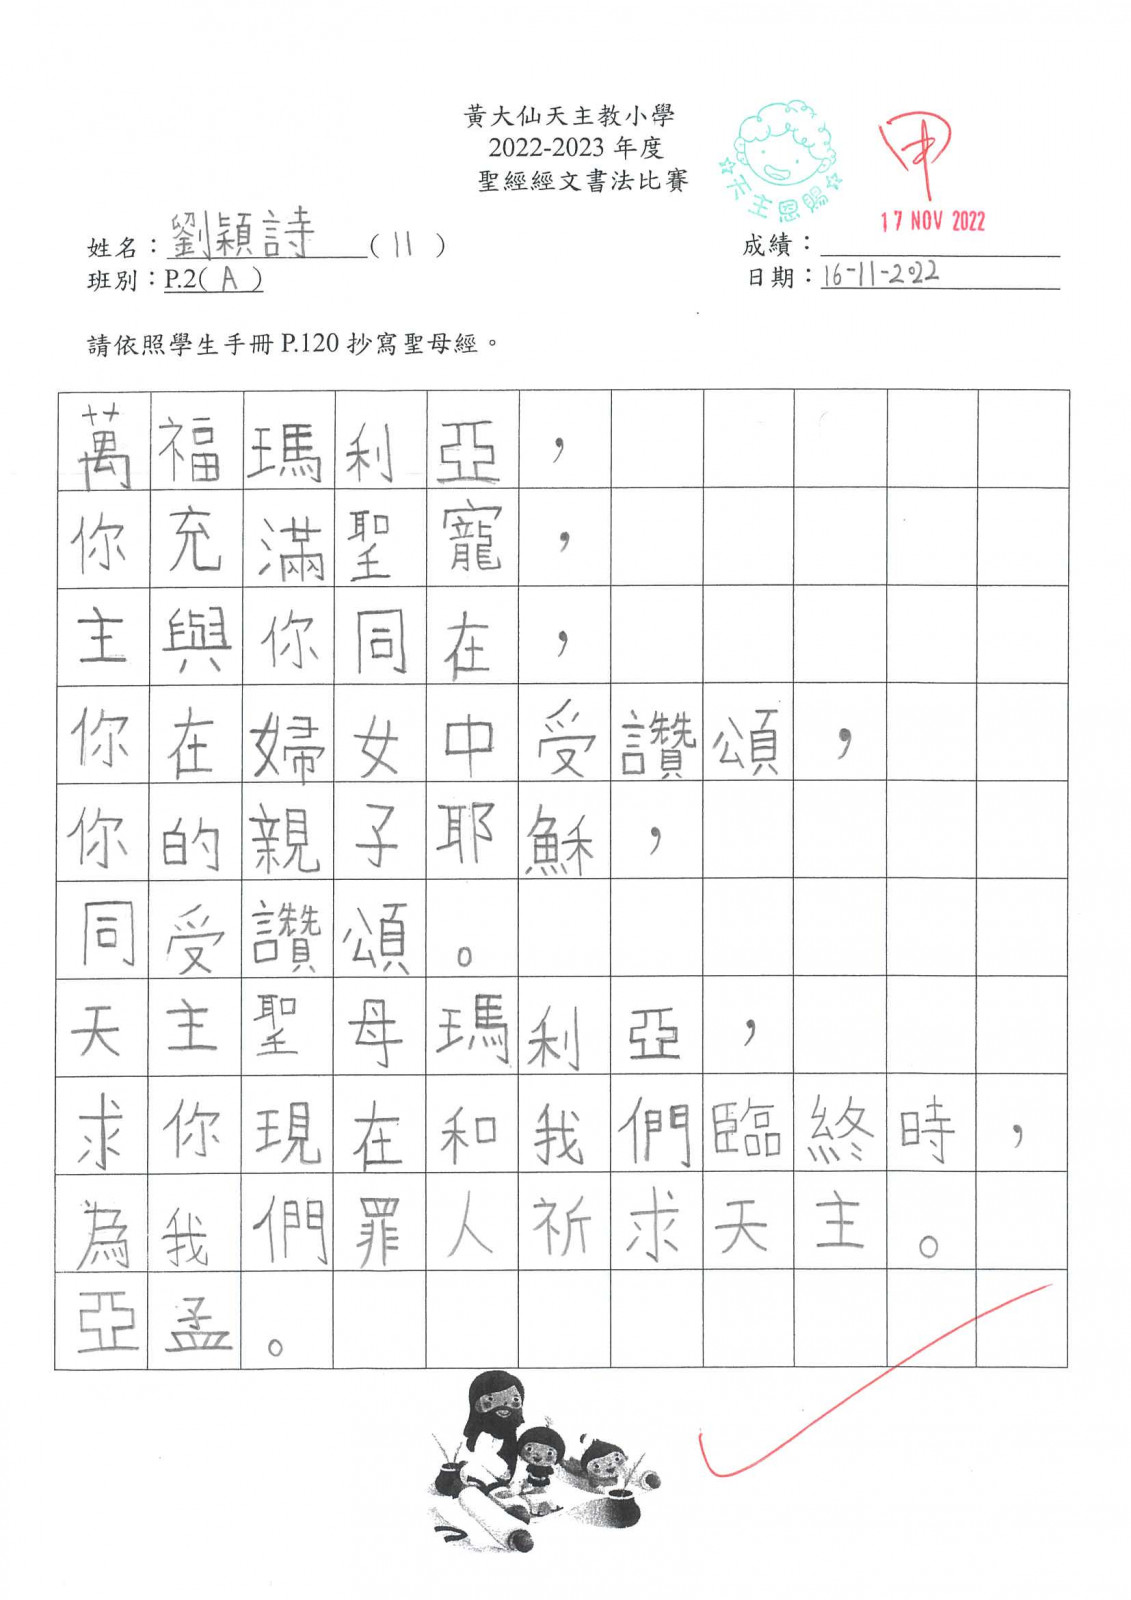 黃大仙天主教小學
2022-2023 年度
聖經經文書法比賽
天主恩賜
甲
17 NOV 2022
姓名：劉穎詩（11）
成績：
班別：P.2(A)
日期：16-11-2022
請依照學生手冊P.120抄寫聖母經。
萬福瑪利亞，
你充滿聖寵，
主與你同在，
你在婦女中受讚頌，
你的親子耶穌，
同受讚頌。
天主聖母瑪利亞，
求你現在和我們臨終時，
為我們罪人祈求天主。
亞孟。